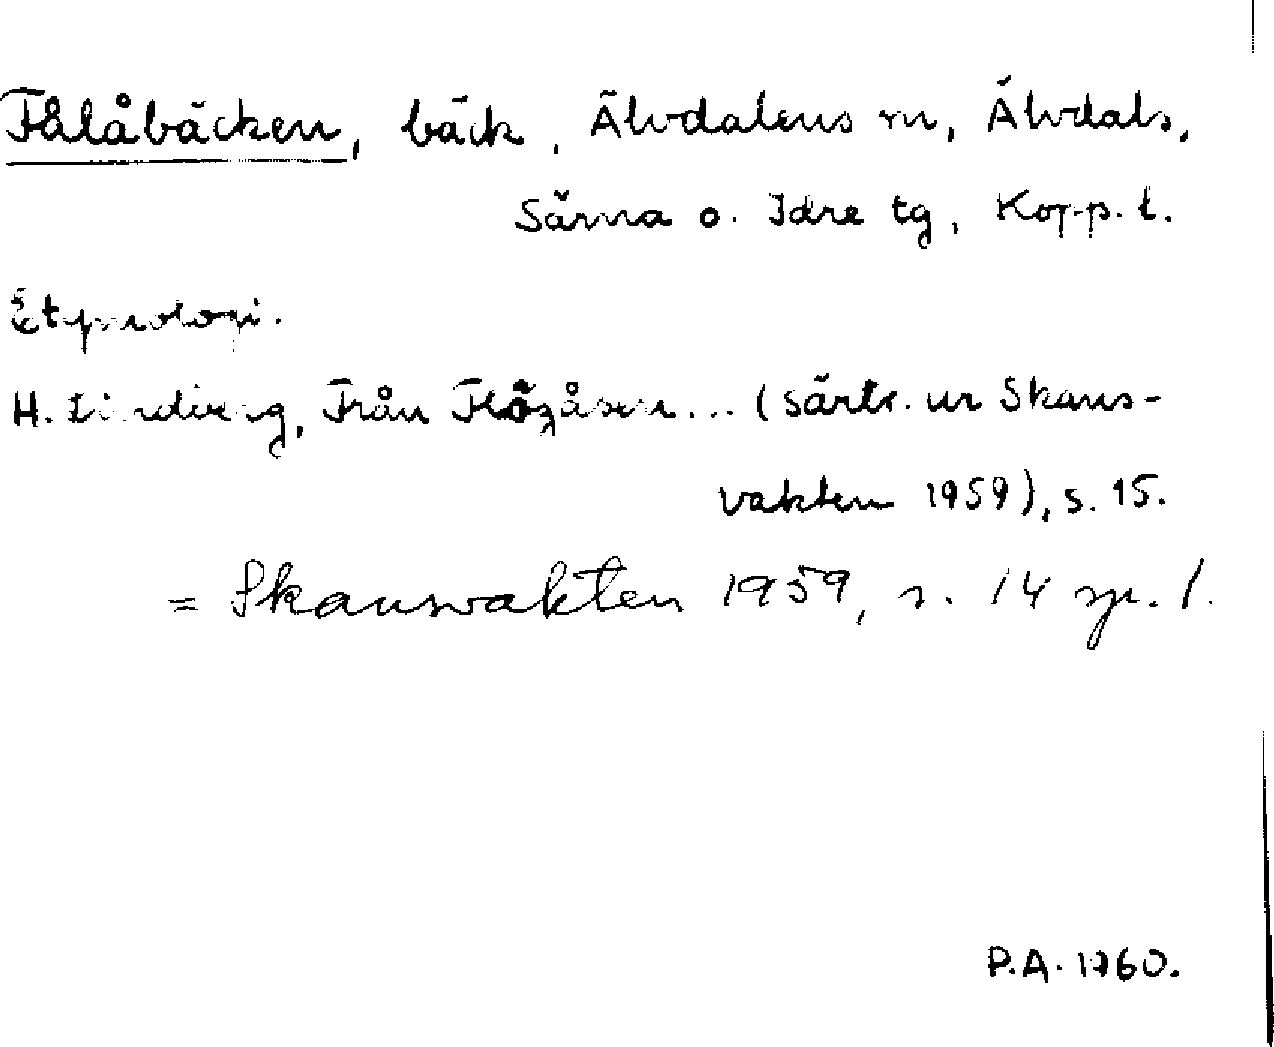 Fålåbäcken, bäck, Älvdalens sn, Älvdals,
Särna o. Idre tg, Kopp. l.
Etymologi.
H. Lindberg, Från Flögåsen... (särtr. ur Skans-
vakten 1959), s. 15.
= Skansvakten 1959, s. 14 sp. 1.
P.A. 1960.